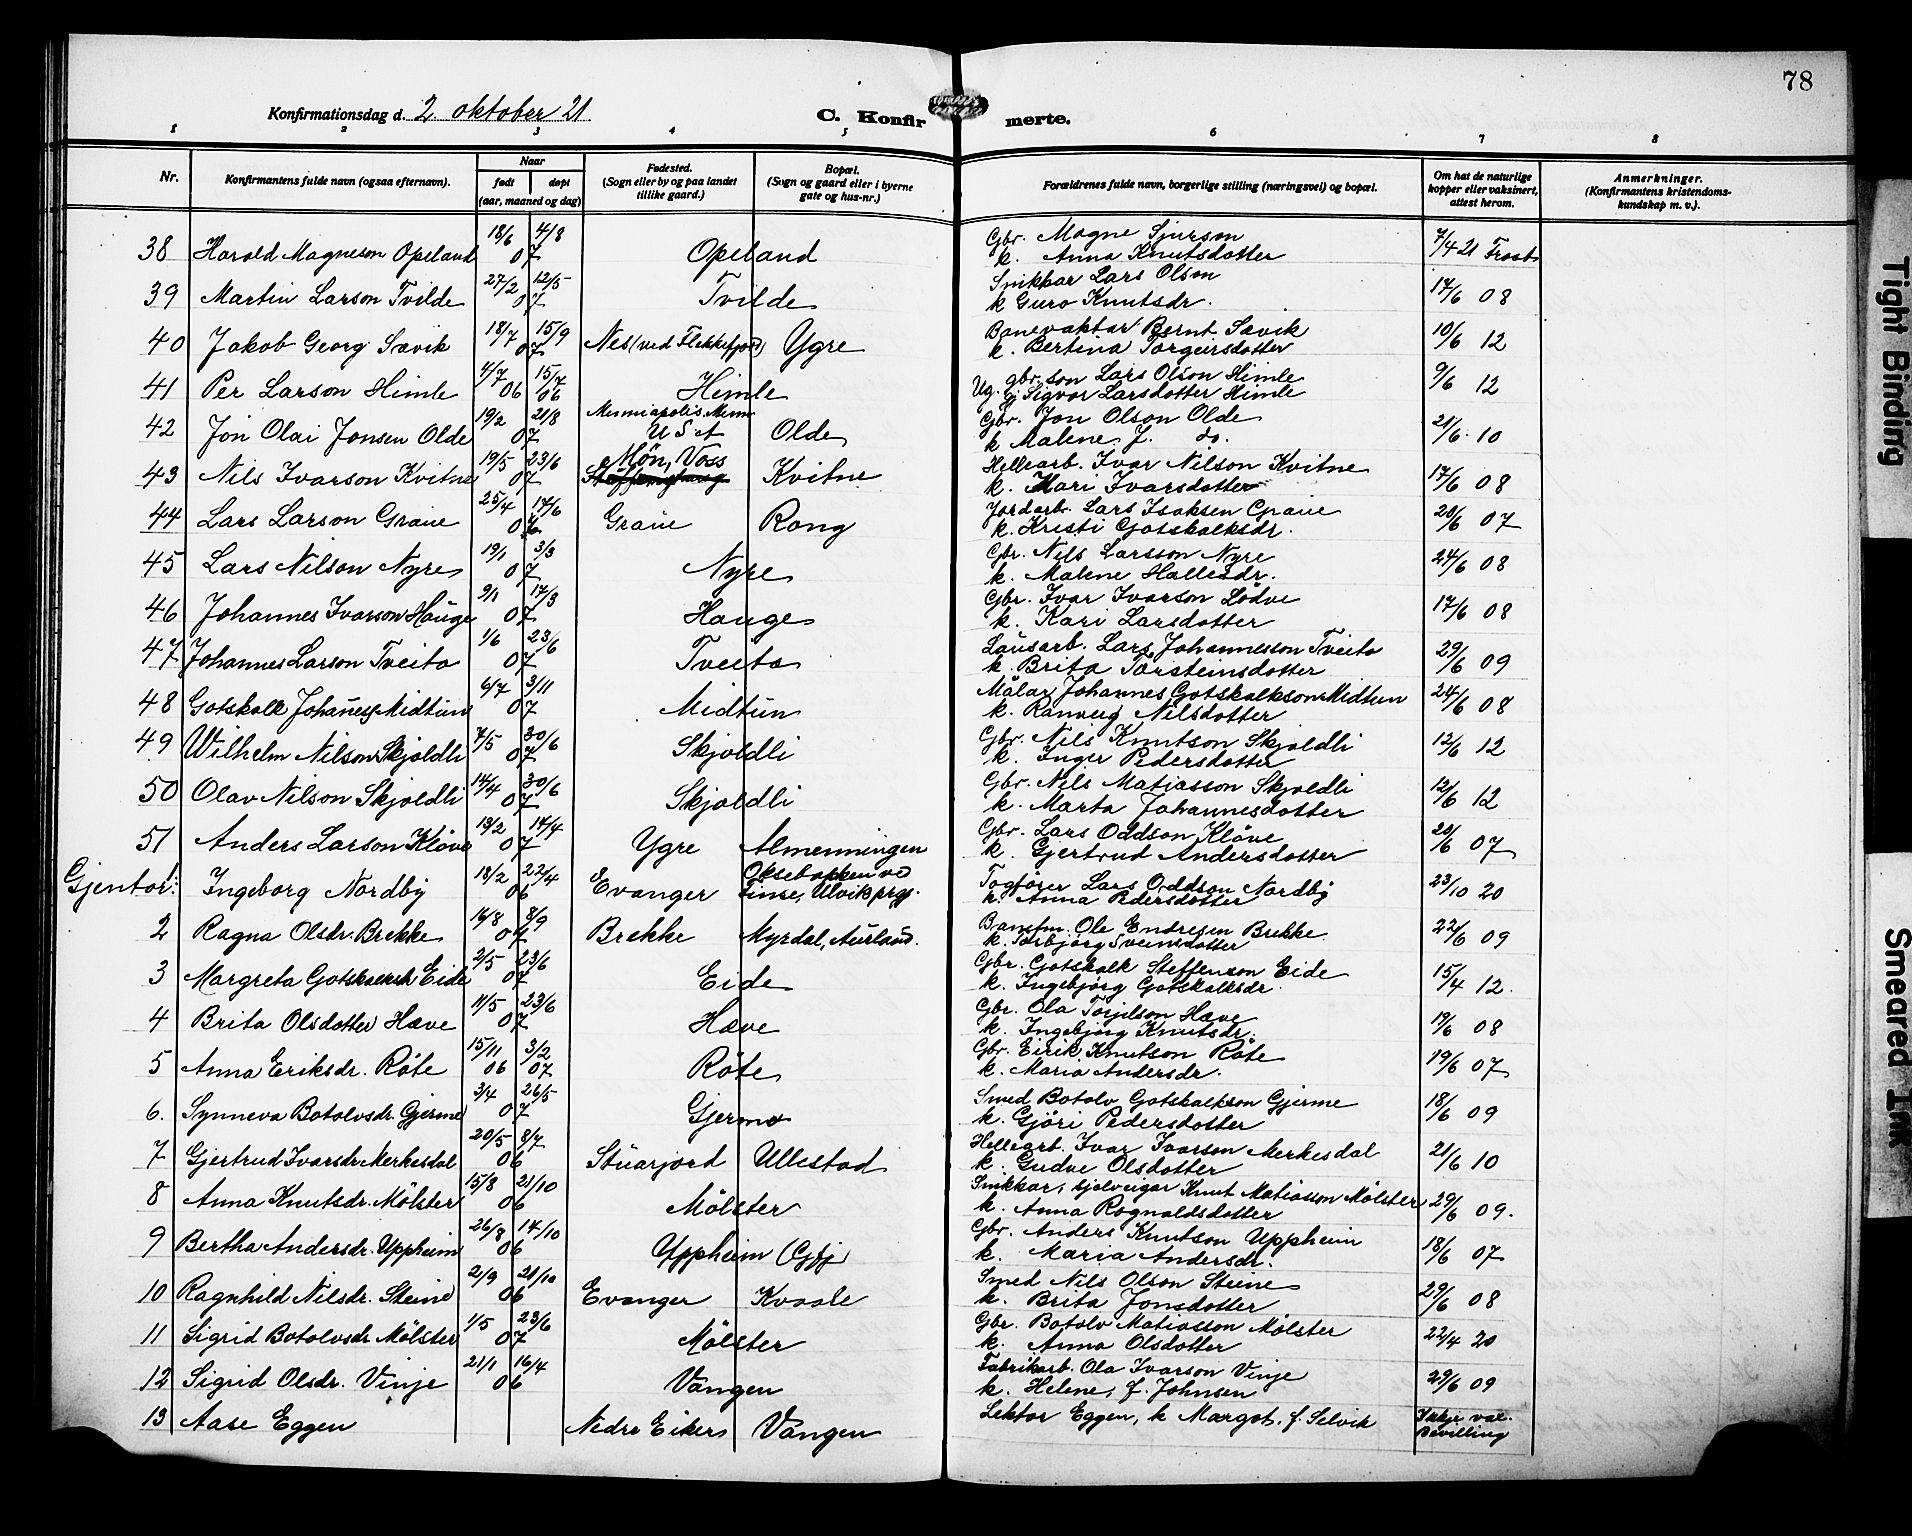 78
Konfirmationsdag d. 2. oktober 21
C. Konfirmerte.
1 2 3 4 5 6 7 8
Nr. Konfirmantens fulde navn (ogsaa efternavn). Naar født døpt (aar, maaned og dag) Fødested. (Sogn eller by og paa landet tillike gaard.) Bopæl. (Sogn og gaard eller i byerne gate og hus-nr.) Forældrenes fulde navn, borgerlige stilling (næringsvei) og bopæl. Om hat de naturlige kopper eller vaksinert, attest herom. Anmerkninger. (Konfirmantens kristendomskundskap m. v.).
38 Harald Magneson Opeland 18/6 4/8 07 Opeland Gbr. Magne Sjurson k. Anna Knutsdotter 7/4 21
39 Martin Larson Tvilde 27/2 12/5 07 Tvilde Snikkar Lars Olson k Guro Knutsdr. 17/6 08
40 Jakob Georg Sævik 18/7 15/9 07 Nes (ved Flekkefjord) Ygre Banevaktar Bernt Sævik k. Bertina Torgeirsdotter 10/6 12
41 Per Larson Himle 4/7 06 15/7 06 Himle Ug. gbr.son Lars Olson Himle gj. Sigvor Larsdotter Himle 9/6 12
42 Jon Olai Jonsen Olde 19/2 21/8 07 U S A Olde Gbr. Jon Olson Olde k Malene f. do. 21/6 10
43 Nils Ivarson Kvitne 19/5 23/6 07 Møn, Voss Kvitne Hellearb. Ivar Nilson Kvitne k. Mari Ivarsdotter 17/6 08
44 Lars Larson Graue 25/4 17/6 Graue Rong Jordarb. Lars Isaksen Graue k. Kristi Gotskalksdr. 20/6 07
45 Lars Nilson Nyre 19/1 3/3 07 Nyre Gbr. Nils Larsson Nyre k. Malene Hallesdr. 24/6 08
46 Johannes Ivarson Hauge 9/1 17/3 07 Hauge Gbr. Ivar Ivarson Lødve k. Kari Larsdotter 17/6 08
47 Johannes Larson Tveito 1/6 23/6 07 Tveito Lausarb. Lars Johannesson Tveito k. Brita Torsteinsdotter 29/6 09
48 Gotskalk Johannes. Midtun 6/7 3/11 07 Midtun Målar Johannes Gotskalkson Midtun k. Ranveig Nilsdotter 24/6 08
49 Wilhelm Nilson Skjoldli 7/5 30/6 07 Skjoldli Gbr. Nils Knutson Skjoldli k. Inger Pedersdotter 12/6 12
50 Olav Nilson Skjoldli 14/4 30/6 07 Skjoldli Gbr. Nils Matiasson Skjoldli k. Marta Johannesdotter 12/6 12
51 Anders Larson Kløve 13/2 14/4 07 Ygre Almenningen Gbr. Lars Oddson Kløve k. Gjertrud Andersdotter 20/6 07
Gjentor: 1 Ingeborg Nordby 18/2 22/4 06 Evanger Oksebakken ved Finse, Ulvik prgj. Togfører Lars Oddson Nordby k. Anna Pedersdotter 23/10 20
2 Ragna Olsdr. Brekke 16/8 8/9 07 Brekke Myrdal, Aurland. Banefm. Ole Endresen Brekke k. Torbjørg Sveinsdotter 22/6 09
3 Margreta Gotskalksdr Eide 2/5 23/6 07 Eide Gbr. Gotskalk Steffenson Eide k. Ingebjørg Gotskalksdr. 15/4 12.
4 Brita Olsdotter Hæve 11/5 23/6 07 Hæve Gbr. Ola Torjilson Hæve k. Ingebjørg Knutsdr. 19/6 08
5 Anna Eriksdr. Røte 15/11 06 3/2 07 Røte Gbr. Eirik Knutson Røte k. Maria Andersdr. 19/6 07
6. Synneva Botolvsdr. Gjerme 3/4 26/5 07 Gjerme Smed Botolv Gotskalkson Gjerme k. Gjøri Pedersdotter 18/6 09
7 Gjertrud Ivarsdr. Merkesdal 20/5 8/7 06 Ullestad Hellearb. Ivar Ivarson Merkesdal k. Gudve Olsdotter 21/6 10
8 Anna Knutsdr. Mølster 15/8 21/10 06 Mølster Snikkar, sjølveigar Knut Matiasson Mølster k. Anna Rognaldsdotter 29/6 09.
9 Bertha Andersdr. Uppheim 26/8 14/10 06 Uppheim Gbr. Anders Knutson Uppheim k. Maria Andersdr. 18/6 07
10 Ragnhild Nilsdr. Steine 2/9 21/10 06 Evanger Kvaale Smed Nils Olson Steine k. Brita Jonsdotter 29/6 08
11 Sigrid Botolvsdr. Mølster 1/5 23/6 07 Mølster Gbr. Botolv Matiasson Mølster k. Anna Olsdotter 22/4 20
12 Sigrid Olsdr. Vinje 21/1 16/4 06 Vangen Fabrikarb. Ola Ivarson Vinje k. Helene, f. Johnsen 29/6 09
13 Aase Eggen Nedre Eiker Vangen Lektor Eggen, k Margot, f. Selvik Ikkje vac. Bevilling
Tight Binding
Smeared Ink